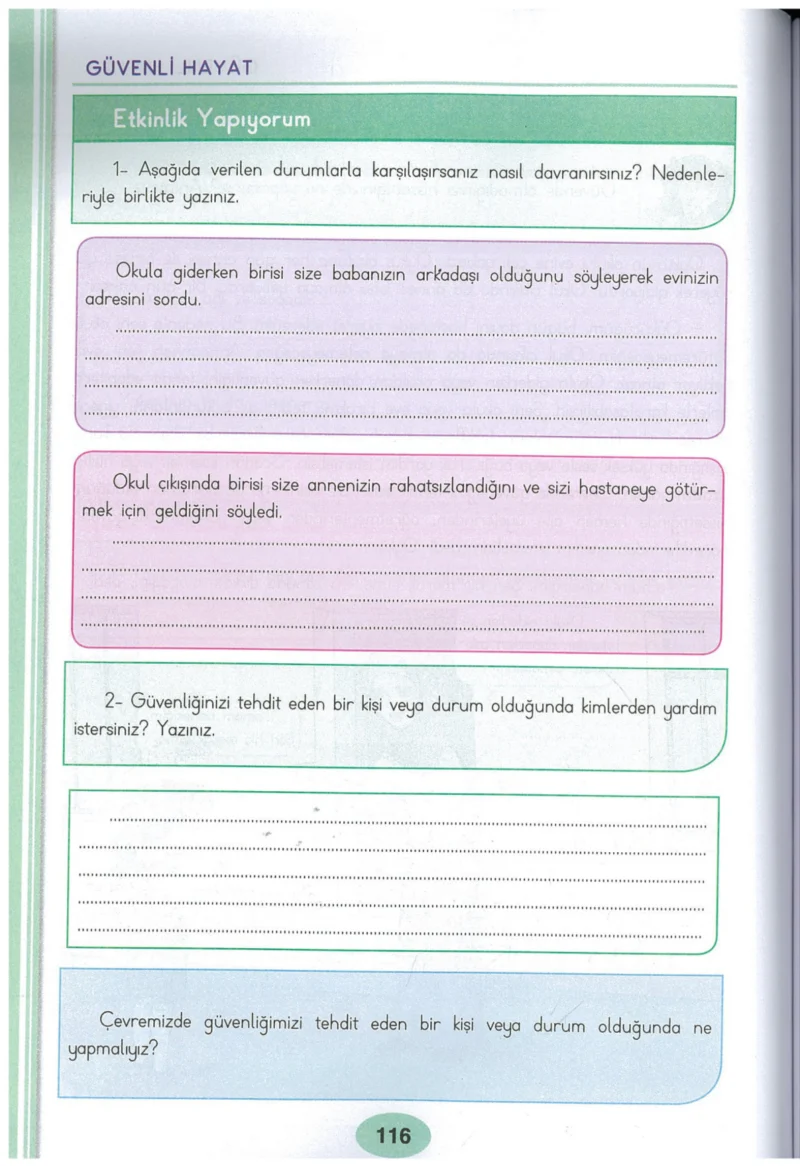 GÜVENLİ HAYAT
Etkinlik Yapıyorum
1- Aşağıda verilen durumlarla karşılaşırsanız nasıl davranırsınız? Nedenle-
riyle birlikte yazınız.
Okula giderken birisi size babanızın arkadaşı olduğunu söyleyerek evinizin
adresini sordu.
Okul çıkışında birisi size annenizin rahatsızlandığını ve sizi hastaneye götür-
mek için geldiğini söyledi.
2- Güvenliğinizi tehdit eden bir kişi veya durum olduğunda kimlerden yardım
istersiniz? Yazınız.
Çevremizde güvenliğimizi tehdit eden bir kişi veya durum olduğunda ne
yapmalıyız?
116